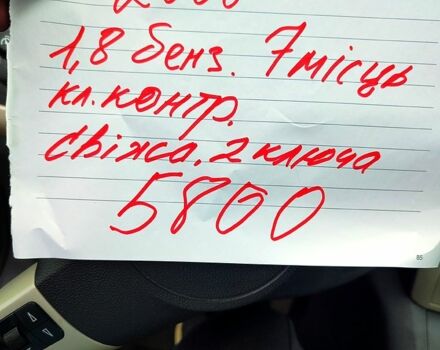 1,8 бенз. 7 місць
кл.контр.
свіжа. 2 ключа
5800
85